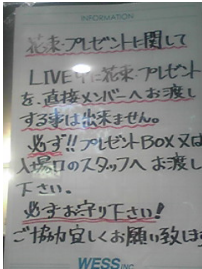 INFORMATION
花束・プレゼントに関して
LIVE中に花束・プレゼント
を、直接メンバーへお渡し
する事は出来ません。
必ず!!プレゼントBOX又は
入場口のスタッフへお渡し
下さい。
必ずお守り下さい!
ご協力宜しくお願い致します
WESS INC.